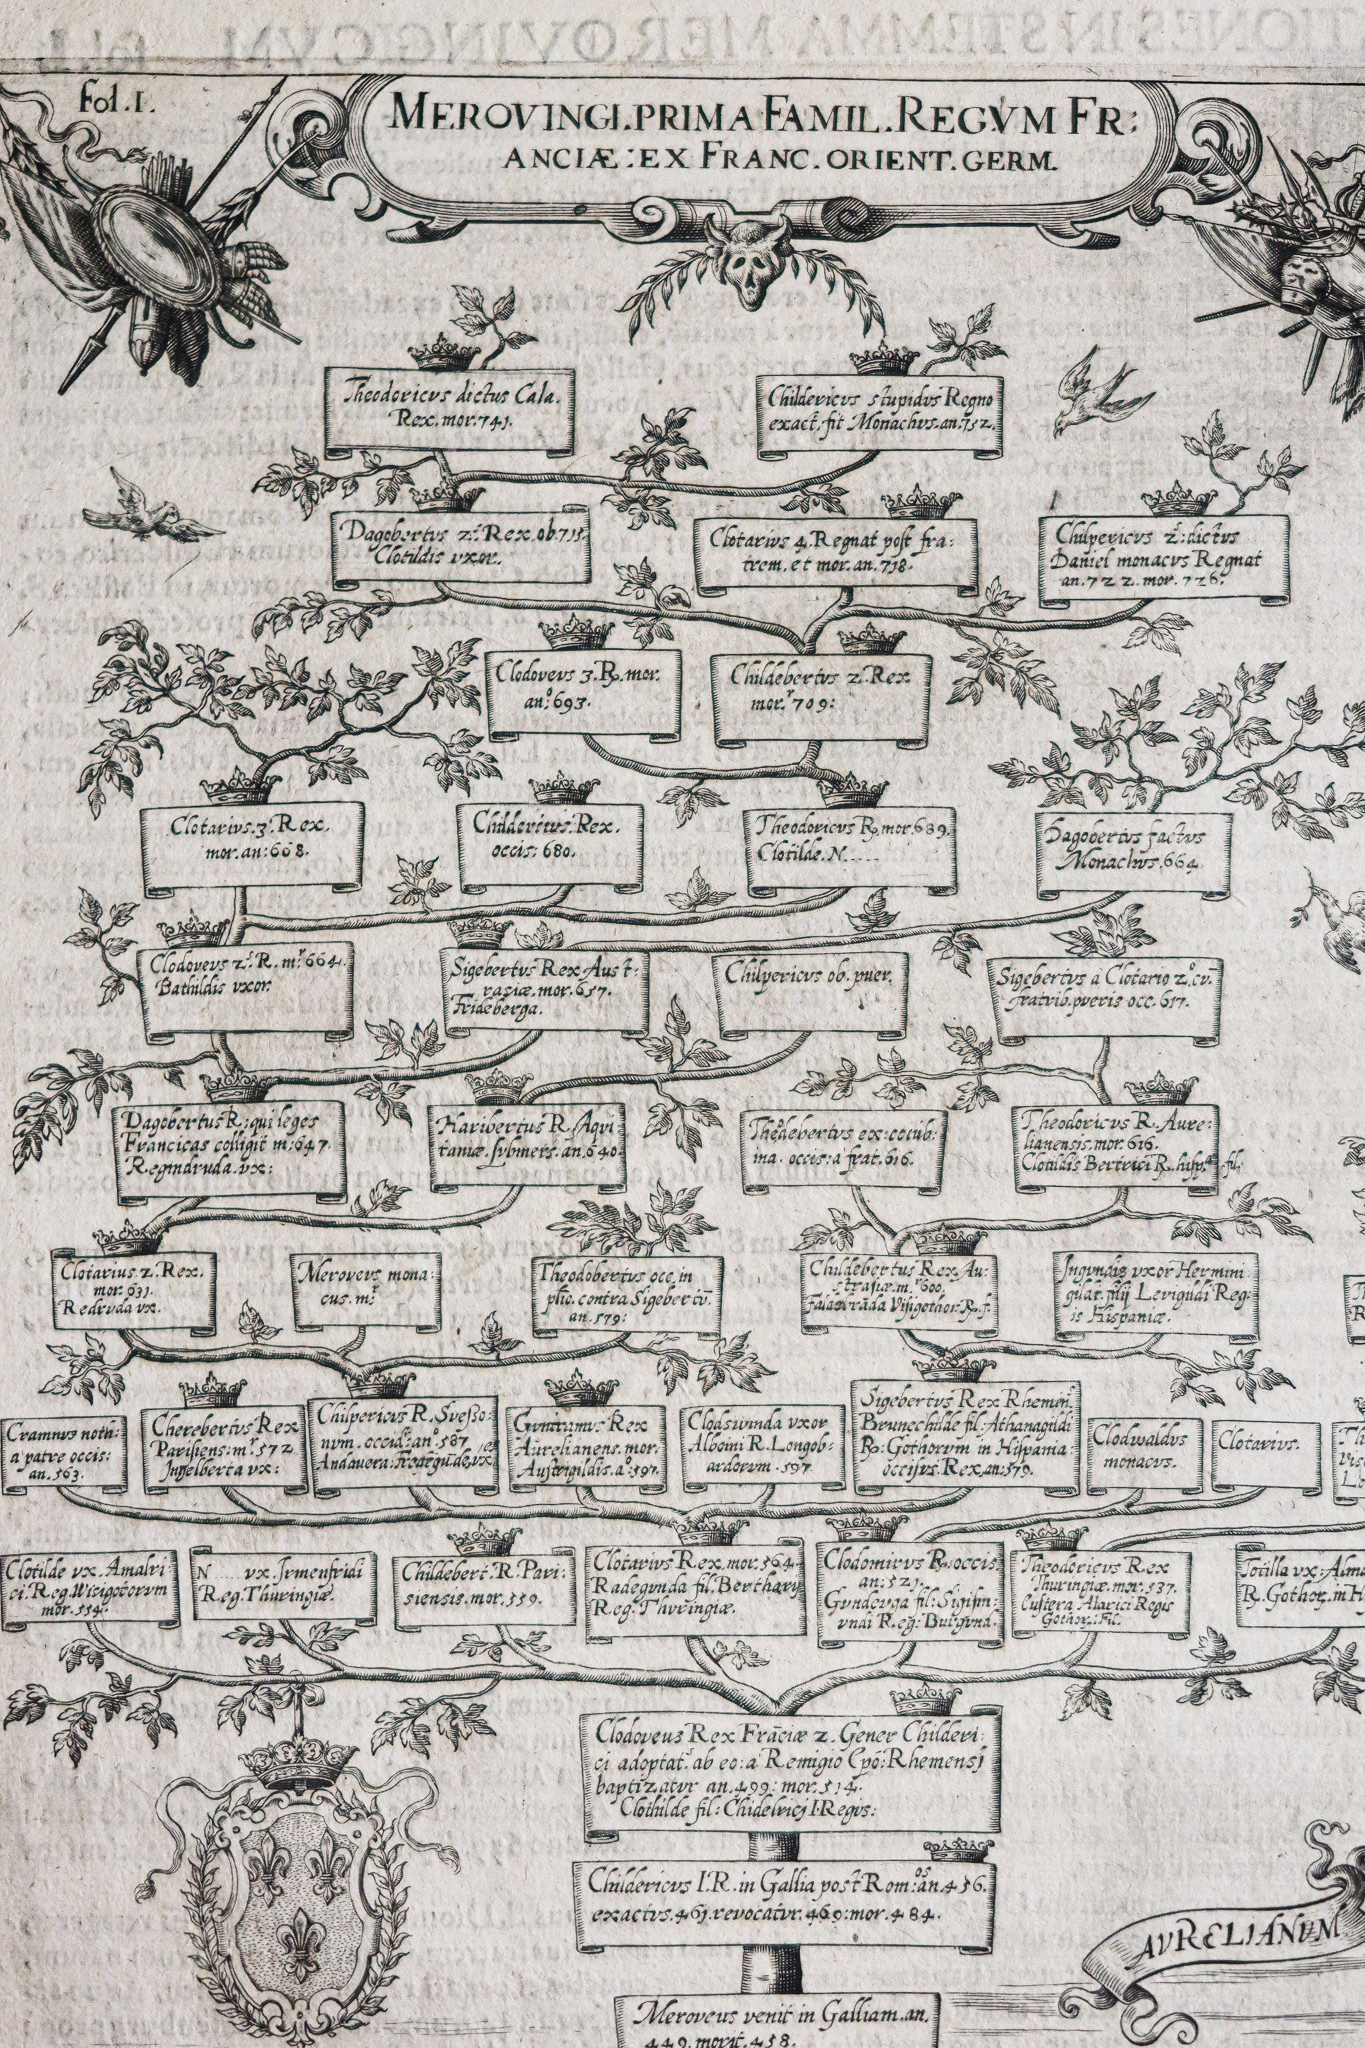 Fol. I.
MEROVINGI. PRIMA FAMIL. REGVM FR:
ANCIÆ: EX FRANC. ORIENT. GERM.
Theodoricvs dictus Cala.
Rex. mor. 741.
Childericvs stupidvs Regno
exact. fit Monachvs. an. 752.
Dagobertvs 2. Rex. ob. 715
Clotildis vxor.
Clotarivs 4. Regnat post fra:
trem, et mor. an. 718.
Chilpericvs 2: dictvs
Daniel monacvs Regnat
an. 722. mor. 726.
Clodovevs 3. R. mor.
an: 693.
Childebertvs 2. Rex
mor. 709:
Clotarivs. 3. Rex.
mor. an: 668.
Childericvs. Rex.
occis: 680.
Theodoricvs R. mor. 689.
Clotilde. N.....
Dagobertvs factvs
Monachvs. 664.
Clodovevs 2. R. m. 664.
Bathildis vxor.
Sigebertvs Rex Aust:
rasiæ. mor. 657.
Frideberga.
Chilpericvs ob. puer.
Sigebertvs a Clotario 2. cū
fratrib. pveris occ. 617.
Dagobertus R. qui leges
Francicas colligit m: 647.
Regndruda. vx:
Haribertus R. Aqvi:
taniæ. svbmers. an. 640.
Theodebertvs ex: cōcub:
ina. occis: a frat. 616.
Theodoricvs R. Avre:
lianensis. mor. 616.
Clotildis Bertrici R. hisp. fil.
Clotarius. 2. Rex.
mor. 631.
Redrvda vx.
Merovevs mona:
cus. m.
Theodobertvs occ. in
plio. contra Sigebertū.
an. 579:
Childebertus Rex Au:
strasiæ. m. 600.
Visigothor. R. f.
Ingvndis vxor Hermini
gild. filij Levigildi Reg:
is Hispaniæ.
Cramnvs noth:
a patre occis:
an. 563.
Cherebertvs Rex
Parisiens: m: 572
Ingelberta vx:
Chilpericvs R. Svesso:
num. occid: an: 587
Andavera: Fredegūde, vx.
Gvntramvs Rex
Avrelianens. mor.
Avstrigildis. a. 597.
Clodswinda vxor
Alboini R. Longob:
ardorvm. 597.
Sigebertvs Rex Rhemen.
Brunechilde fil. Athanagildi
R. Gothorvm in Hispania:
occisvs. Rex. an: 579.
Clodwaldvs
monacvs.
Clotarivs.
Clotilde vx. Amalri:
ci. Reg. Wisigotorvm
mor. 554.
N..... vx. Irmenfridi
Reg. Thuringiæ.
Childebert. R. Pari:
siensis. mor. 559.
Clotarivs Rex. mor. 564.
Radegvnda fil. Bertharij
Reg. Thvringiæ.
Clodomirvs R. occis.
an: 521.
Gvndevga fil: Sigism:
vndi Reg: Burgvnd.
Theodericvs Rex
Thuringiæ. mor. 537.
Custera Alarici Regis
Gothor: Fil:
Totilla vx: Ama
R. Gothor. in H
Clodoveus Rex Frāciæ 2. Gener Childeri:
ci adoptat. ab eo: a Remigio Epō: Rhemensj
baptizatvr an. 499: mor. 514.
Clothilde fil: Chidelricj I. Regvs:
Childericvs I. R. in Gallia post Rom.os an. 456.
exactvs. 461. revocatvr. 469: mor. 484.
Meroveus venit in Galliam. an.
449. morit. 458.
AVRELIANVM